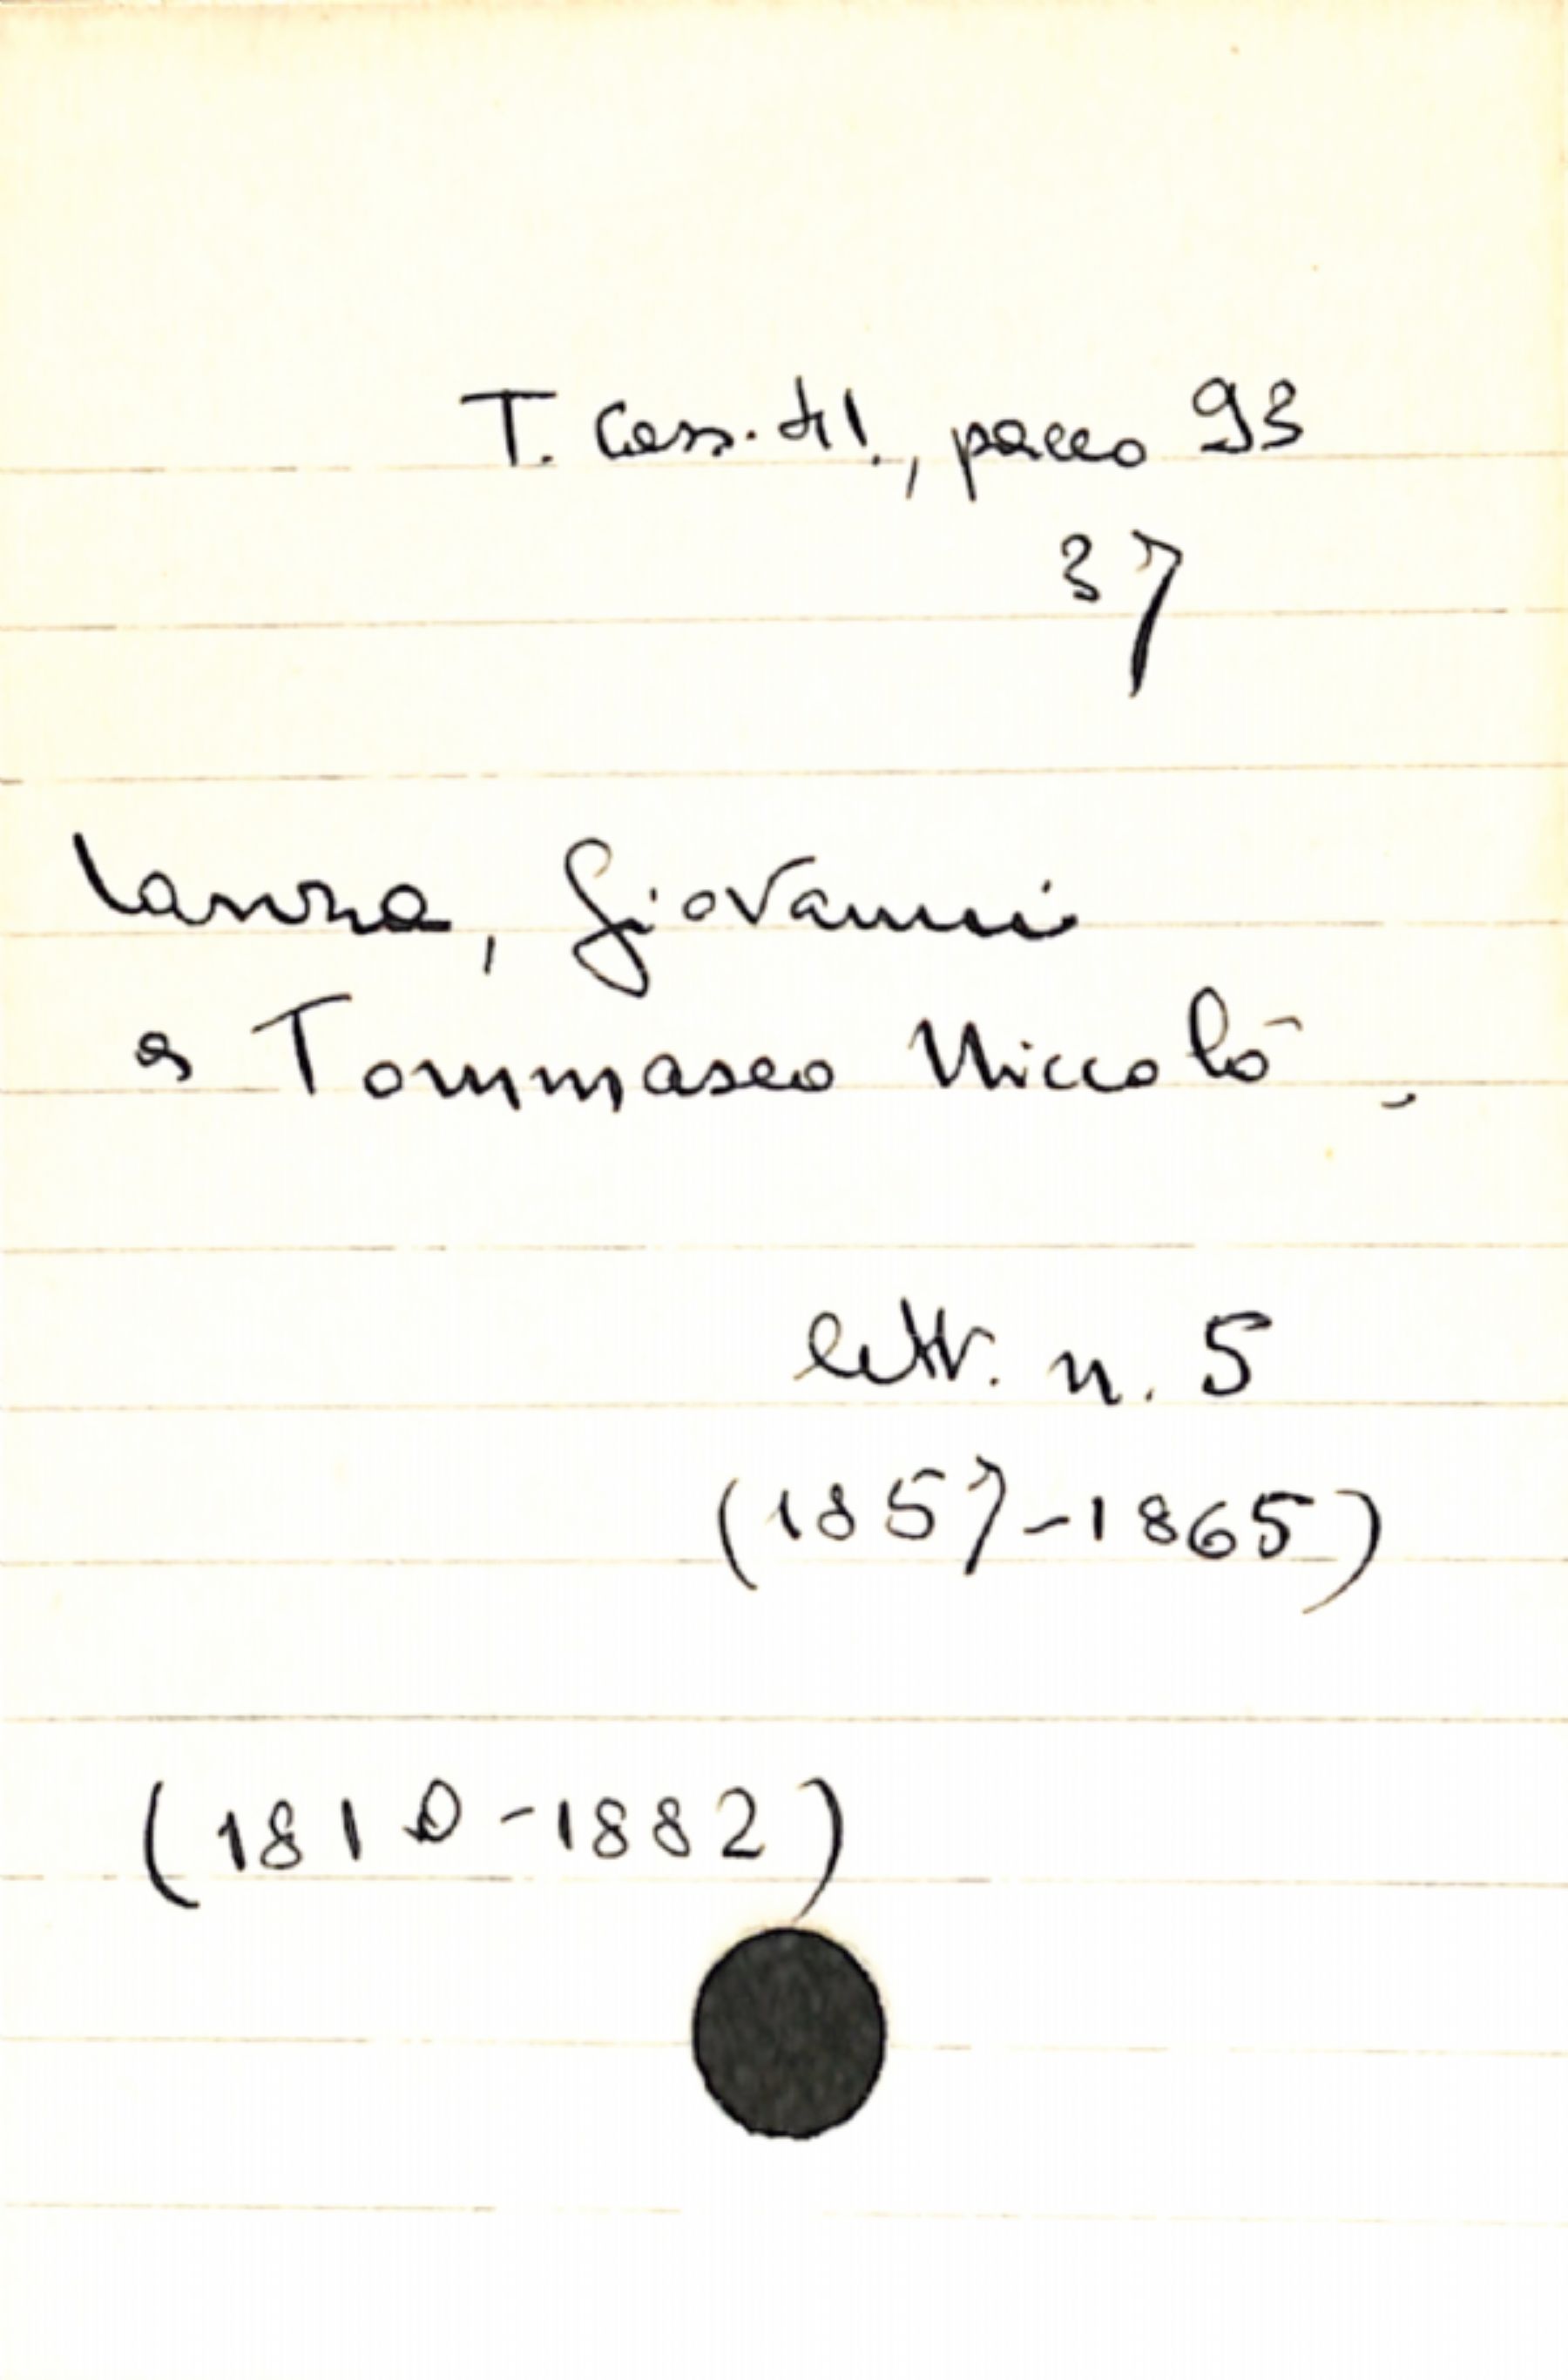 T. Cass. 41., pacco 93
37
Lanza, Giovanni
a Tommaseo Niccolò,
lett. n. 5
(1857-1865)
(1810-1882)